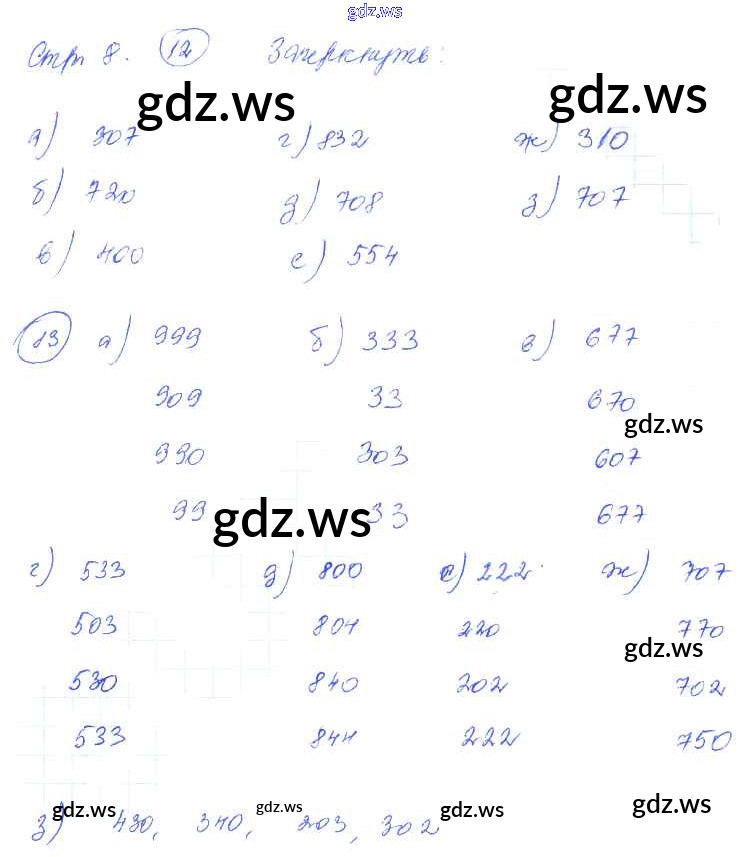 gdz.ws
Стр 8. 12 Зачеркнуть:
gdz.ws gdz.ws
а) 307 г) 832 ж) 310
б) 720 д) 708 з) 707
в) 400 е) 554
13 а) 999 б) 333 в) 677
909 33 670
gdz.ws
990 303 607
99 33 677
gdz.ws
г) 533 д) 800 е) 222 ж) 707
503 804 220 770
gdz.ws
530 840 202 702
533 844 222 750
gdz.ws gdz.ws gdz.ws gdz.ws
з) 430, 340, 203, 302